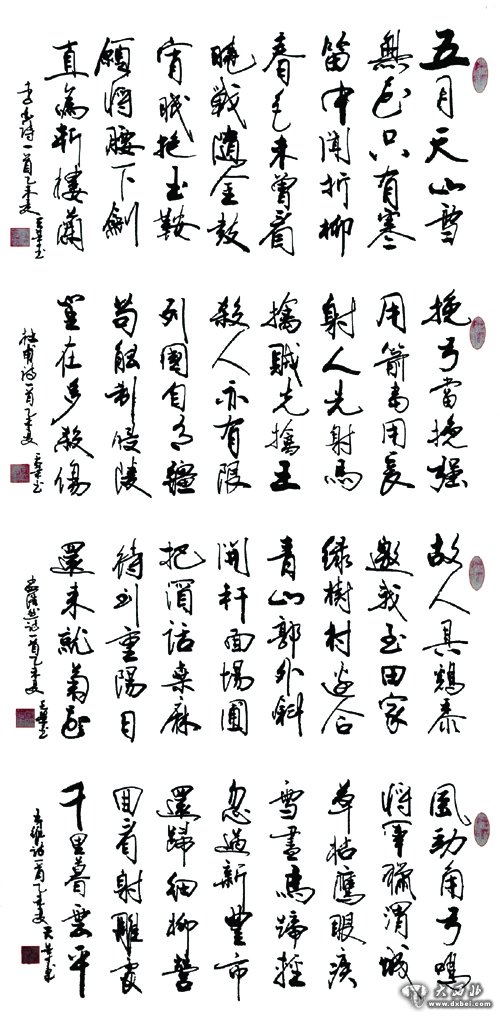 五月天山雪
無花只有寒
笛中聞折柳
春色未曾看
曉戰隨金鼓
宵眠抱玉鞍
願將腰下劍
直為斬樓蘭
李白詩一首乙未夏
挽弓當挽強
用箭當用長
射人先射馬
擒賊先擒王
殺人亦有限
列國自有疆
苟能制侵陵
豈在多殺傷
杜甫詩一首乙未夏
故人具鷄黍
邀我至田家
綠樹村邊合
青山郭外斜
開軒面場圃
把酒話桑麻
待到重陽日
還來就菊花
孟浩然詩一首乙未夏
風勁角弓鳴
將軍獵渭城
草枯鷹眼疾
雪盡馬蹄輕
忽過新豐市
還歸細柳營
回看射雕處
千里暮雲平
王維詩一首乙未夏
大西北
www.dxbei.com